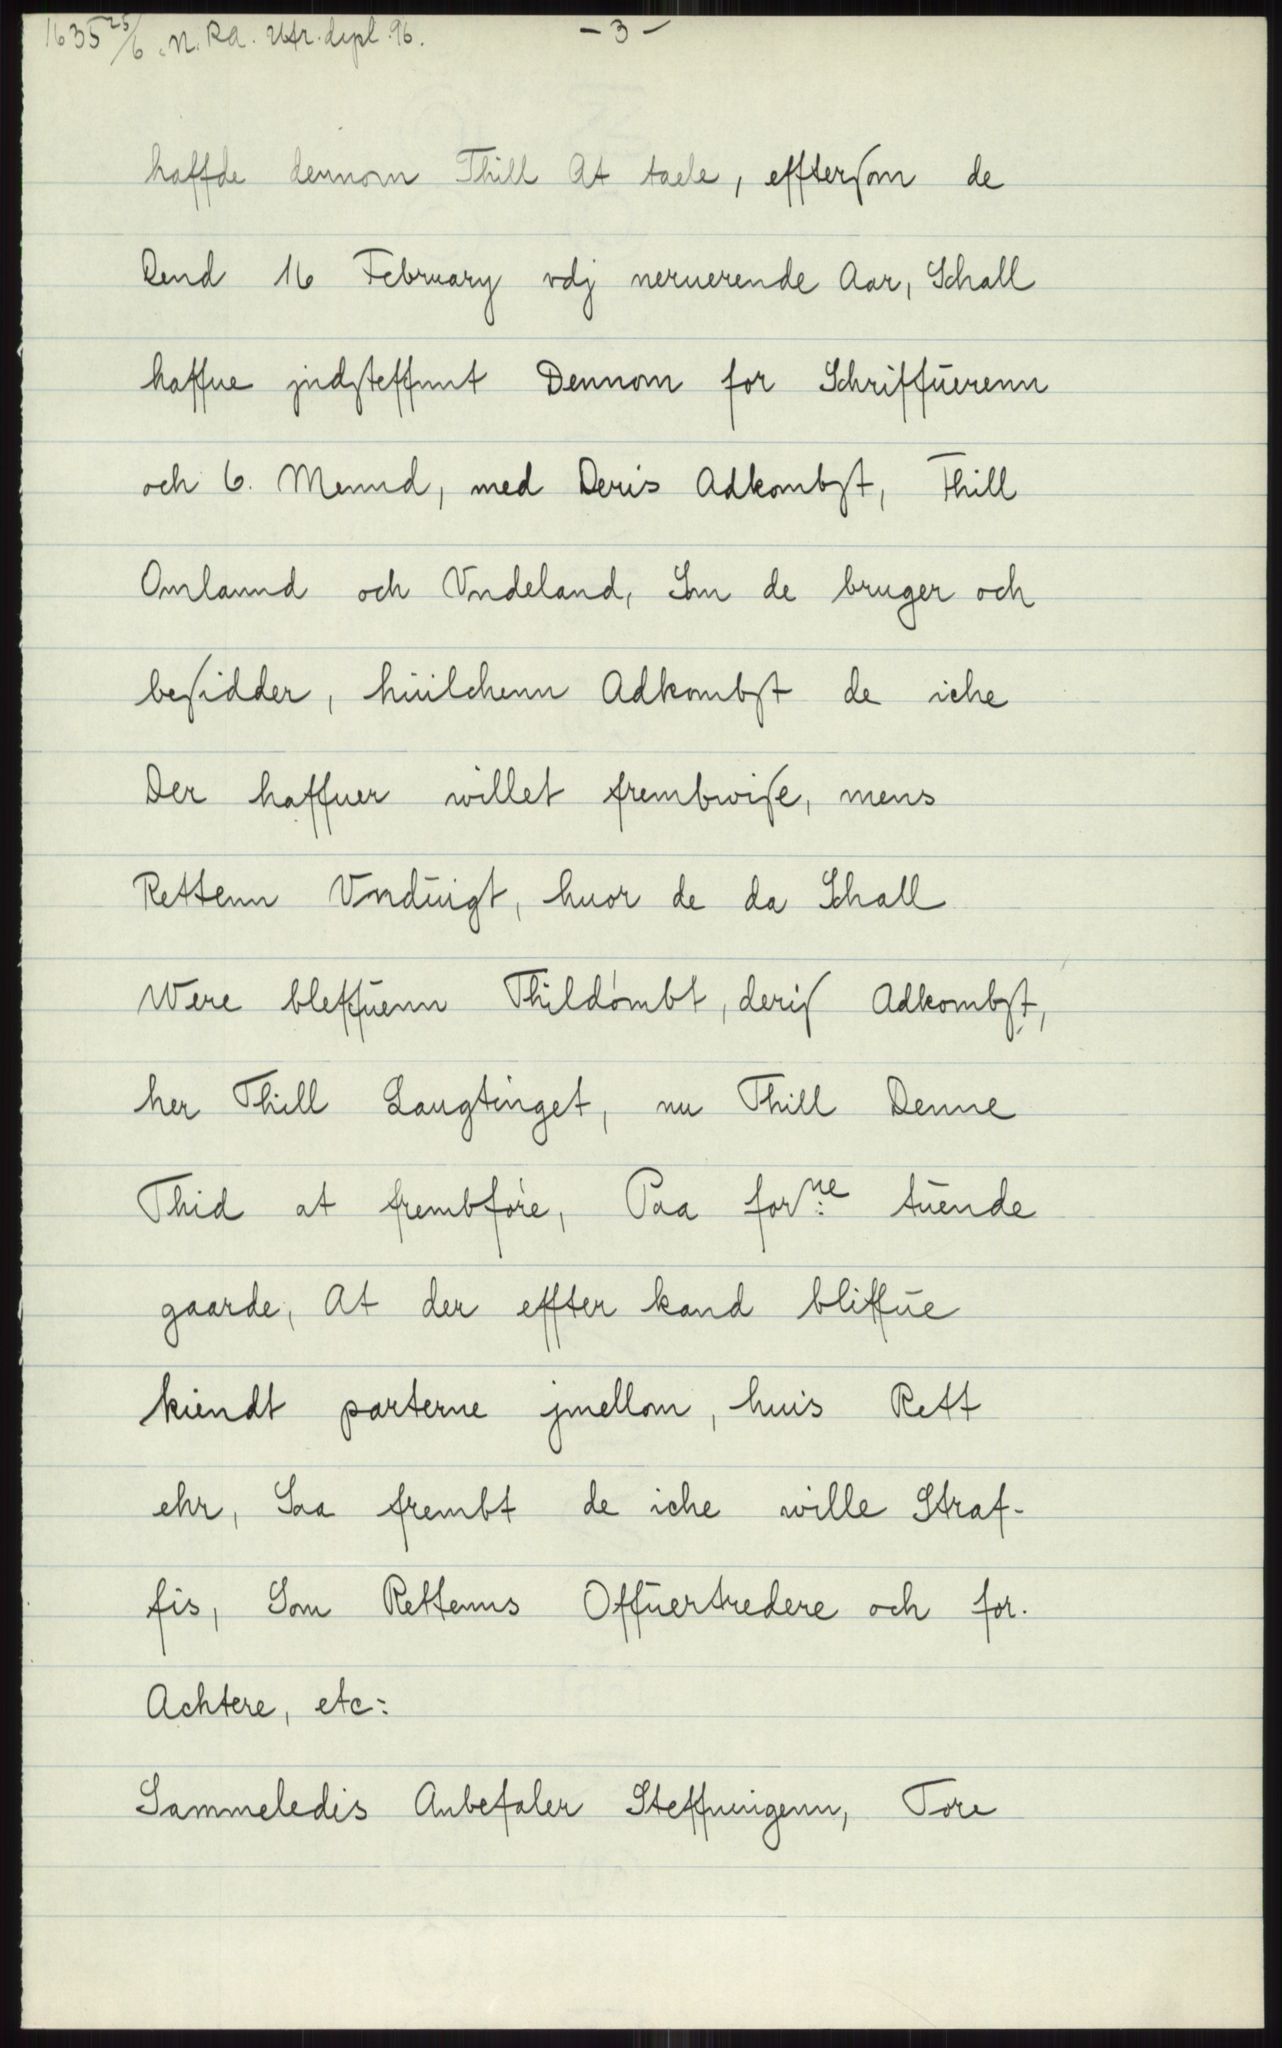 1635 25/6 .N. RA. Utr. dipl. 96.
- 3 -
haffde dennom Thill At taele, effterſom de
Dend 16 February vdj neruerende Aar, Schall
haffue jndſteffnnt Dennom for Schriffŭerenn
och 6. Mennd, med Deris Adkombſt, Thill
Omlannd och Vndeland, Som de bruger och
beſidder, hŭilchenn Adkombſt de iche
Der haffuer willet frembwiſe, mens
Rettenn Vndŭigt, huor de da Schall
Were bleffŭenn Thildömbt, deriſ Adkombſt,
her Thill Laugtinget, nu Thill Denne
Thid at frembföre, Paa forne: tŭende
gaarde, At der effter kand bliffŭe
kiendt parterne jmellom, huis Rett
ehr, Saa frembt de iche wille Straf-
fis, Som Rettenns Offŭertredere och for-
Achtere, etc:
Sammeledis Anbefaler Steffningenn, Tore